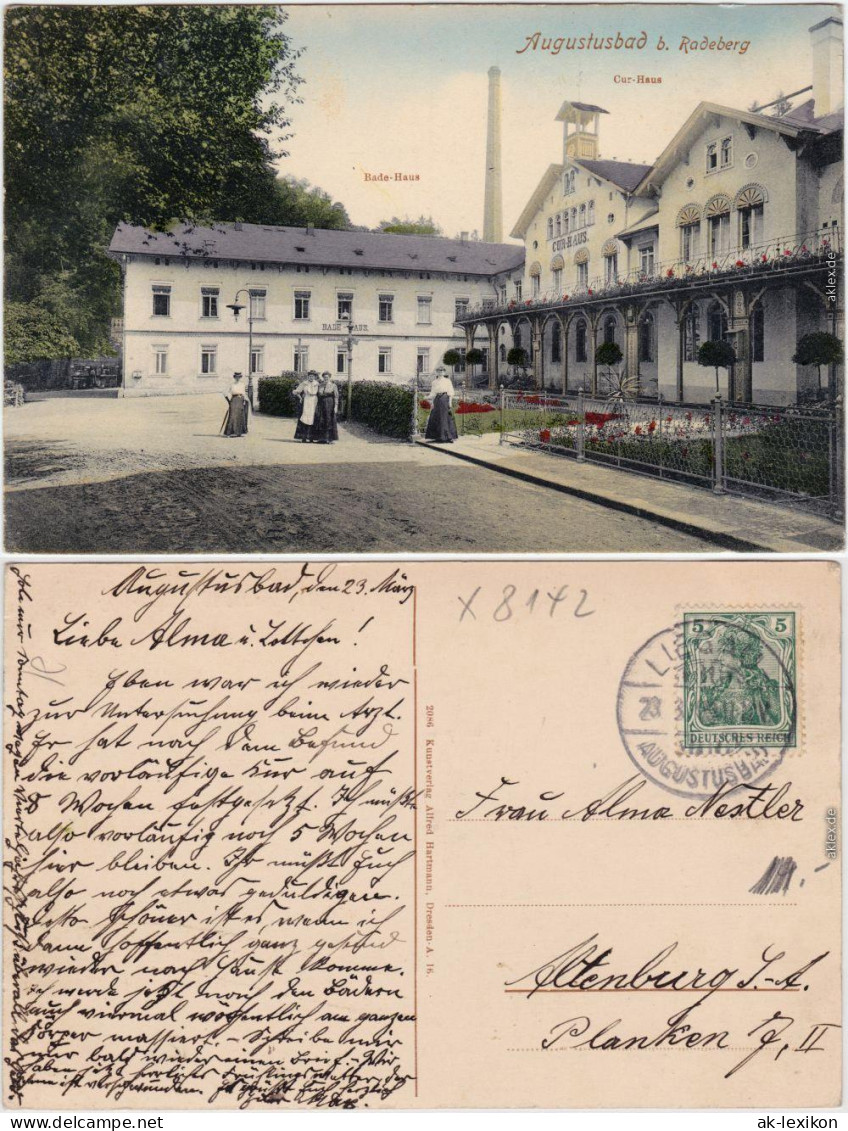 Augustusbad b. Radeberg
Cur-Haus
Bade-Haus
CUR-HAUS
BADE HAUS
Augustusbad, den 23. März
Liebe Alma u. Lottchen!
Eben war ich wieder
zur Untersuchung beim Arzt.
Er hat nach dem Befund
die vorläufige Kur auf
5 Wochen festgesetzt. Ich müßte
also vorläufig noch 5 Wochen
hier bleiben. Ihr müßt Euch
also noch etwas geduldigen.
Desto schöner ist es, wenn ich
dann hoffentlich ganz gesund
wieder nach Hause komme.
Ich werde jetzt nach den Bädern
auch viermal wöchentlich am ganzen
Körper massiert. – Schreibe mir
nur bald wieder einen Brief. – Wir
haben jetzt herrliches Frühlingswetter, der
ist verschwunden. Es grüßt Euch herzlich
Euer
2086 Kunstverlag Alfred Hartmann, Dresden-A. 16.
X 8142
5 5
DEUTSCHES REICH
AUGUSTUSBAD
Frau Alma Nestler
Altenburg S.-A.
Planken 7, II
aklex.de
aklex.de
ak-lexikon
www.delcampe.net